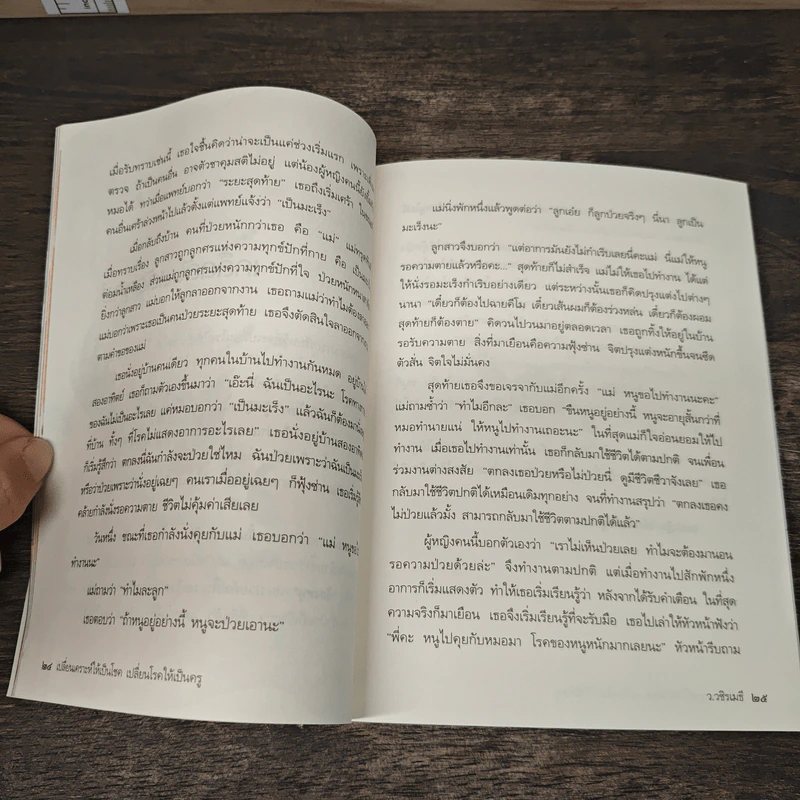 เมื่อรับทราบเช่นนี้ เธอใจชื้นคิดว่าน่าจะเป็นแค่ช่วงเริ่มแรก
ตรวจ ถ้าเป็นคนอื่น อาจตัวชาคุมสติไม่อยู่ แต่น้องผู้หญิงคนนี้
หมอได้ ทว่าเมื่อแพทย์บอกว่า “ระยะสุดท้าย” เธอถึงเริ่มเศร้า
คนอื่นเศร้าล่วงหน้าไปแล้วตั้งแต่แพทย์แจ้งว่า “เป็นมะเร็ง”
เมื่อกลับถึงบ้าน คนที่ป่วยหนักกว่าเธอ คือ “แม่”
เมื่อทราบเรื่อง ลูกสาวถูกลูกศรแห่งความทุกข์ปักที่กาย คือ
ต่อมน้ำเหลือง ส่วนแม่ถูกลูกศรแห่งความทุกข์ปักที่ใจ ป่วยหนัก
ยิ่งกว่าลูกสาว แม่บอกให้ลูกลาออกจากงาน เธอถามแม่ว่าทำไมต้อง
แม่บอกว่าเพราะเธอเป็นคนป่วยระยะสุดท้าย เธอจึงตัดสินใจลาออก
ตามคำขอของแม่
เธอนั่งอยู่บ้านคนเดียว ทุกคนในบ้านไปทำงานกันหมด
สองอาทิตย์ เธอก็ถามตัวเองขึ้นมาว่า “เอ๊ะนี่ ฉันเป็นอะไรนะ
ของฉันไม่เป็นอะไรเลย แค่หมอบอกว่า “เป็นมะเร็ง” แล้วฉันก็ต้อง
ที่บ้าน ทั้งๆ ที่โรคไม่แสดงอาการอะไรเลย” เธอนั่งอยู่บ้านสอง
ก็เริ่มรู้สึกว่า ตกลงนี่ฉันกำลังจะป่วยใช่ไหม ฉันป่วยเพราะว่าฉันเป็น
หรือว่าป่วยเพราะว่านั่งอยู่เฉยๆ คนเราเมื่ออยู่เฉยๆ ก็ฟุ้งซ่าน
คล้ายกำลังนั่งรอความตาย ชีวิตไม่คุ้มค่าเสียเลย
วันหนึ่ง ขณะที่เธอกำลังนั่งคุยกับแม่ เธอบอกว่า “แม่
ทำงานนะ”
แม่ถามว่า “ทำไมละลูก”
เธอตอบว่า “ถ้าหนูอยู่อย่างนี้ หนูจะป่วยเอานะ”
๒๔ เปลี่ยนเคราะห์ให้เป็นโชค เปลี่ยนโรคให้เป็นครู
แม่นิ่งพักหนึ่งแล้วพูดต่อว่า “ลูกเอ๋ย ก็ลูกป่วยจริงๆ นี่นา ลูกเป็น
มะเร็งนะ”
ลูกสาวจึงบอกว่า “แต่อาการมันยังไม่กำเริบเลยนี่คะแม่ นี่แม่ให้หนู
รอความตายแล้วหรือคะ...” สุดท้ายก็ไม่สำเร็จ แม่ไม่ให้เธอไปทำงาน ได้แต่
ให้นั่งรอมะเร็งกำเริบอย่างเดียว แต่ระหว่างนั้นเธอก็คิดปรุงแต่งไปต่างๆ
นานา “เดี๋ยวก็ต้องไปฉายคีโม เดี๋ยวเส้นผมก็ต้องร่วงหล่น เดี๋ยวก็ต้องผอม
สุดท้ายก็ต้องตาย” คิดวนไปวนมาอยู่ตลอดเวลา เธอถูกทิ้งให้อยู่ในบ้าน
รอรับความตาย สิ่งที่มาเยือนคือความฟุ้งซ่าน จิตปรุงแต่งหนักขึ้นจนซีด
ตัวสั่น จิตใจไม่มั่นคง
สุดท้ายเธอจึงขอเจรจากับแม่อีกครั้ง “แม่ หนูขอไปทำงานนะคะ”
แม่ถามซ้ำว่า “ทำไมอีกละ” เธอบอก “ขืนหนูอยู่อย่างนี้ หนูจะอายุสั้นกว่าที่
หมอทำนายแน่ ให้หนูไปทำงานเถอะนะ” ในที่สุดแม่ก็ใจอ่อนยอมให้ไป
ทำงาน เมื่อเธอไปทำงานเท่านั้น เธอก็กลับมาใช้ชีวิตได้ตามปกติ จนเพื่อน
ร่วมงานต่างสงสัย “ตกลงเธอป่วยหรือไม่ป่วยนี่ ดูมีชีวิตชีวาจังเลย” เธอ
กลับมาใช้ชีวิตปกติได้เหมือนเดิมทุกอย่าง จนที่ทำงานสรุปว่า “ตกลงเธอคง
ไม่ป่วยแล้วมั้ง สามารถกลับมาใช้ชีวิตตามปกติได้แล้ว”
ผู้หญิงคนนี้บอกตัวเองว่า “เราไม่เห็นป่วยเลย ทำไมจะต้องมานอน
รอความป่วยด้วยล่ะ” จึงทำงานตามปกติ แต่เมื่อทำงานไปสักพักหนึ่ง
อาการก็เริ่มแสดงตัว ทำให้เธอเริ่มเรียนรู้ว่า หลังจากได้รับคำเตือน ในที่สุด
ความจริงก็มาเยือน เธอจึงเริ่มเรียนรู้ที่จะรับมือ เธอไปเล่าให้หัวหน้าฟังว่า
“พี่คะ หนูไปคุยกับหมอมา โรคของหนูหนักมากเลยนะ” หัวหน้ารีบถาม
ว.วชิรเมธี ๒๕